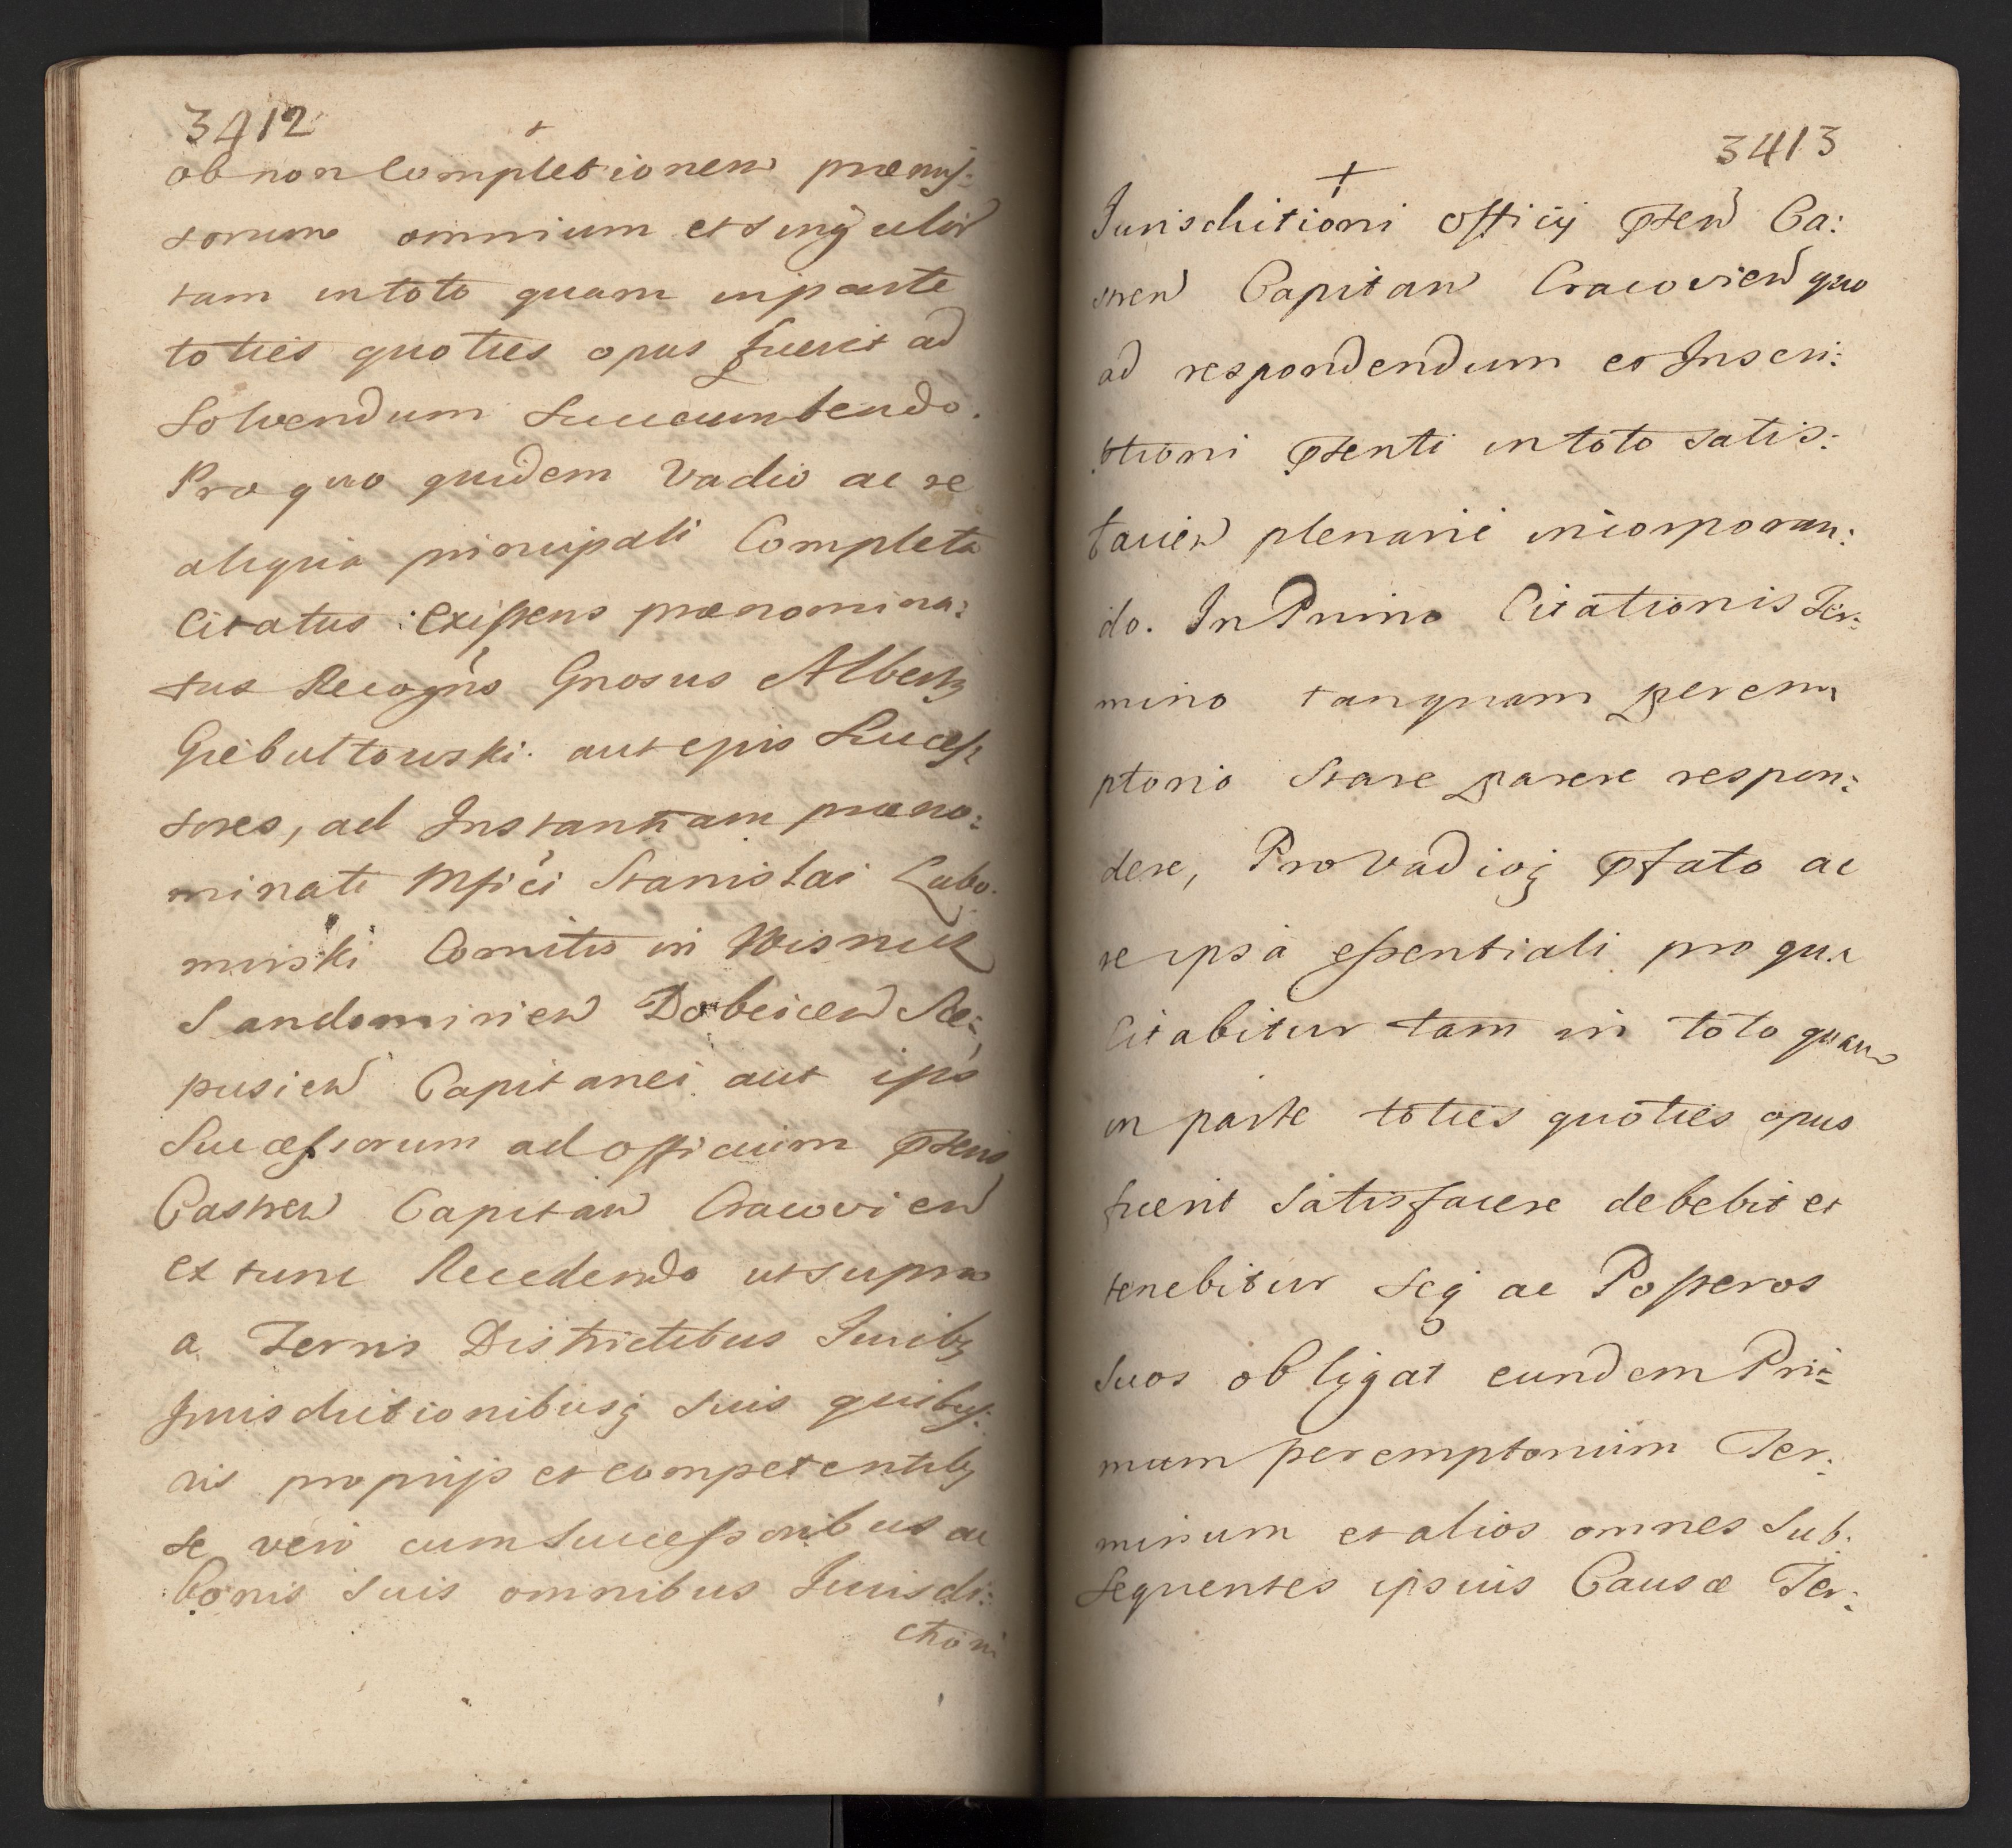 3412
+
ob non Completionem praemis:
sorum omnium et singulor
tam in toto quam in parte
toties quoties opus fuerit ad
Solvendum Succumbendo.
Pro quo quidem Vadio ac re
aliqua principali Completa
Citatus Existens praenomina:
tus Recogns Gnosus Albertq
Giebultowski aut epis Sucess
sores, ad Instantiam praeno:
minati Mfici Stanislai Lubo:
mirski Comitis in Wisnicz
Sandomirien Dobcicen Sce:
pusien Capitanei aut ips
Sucessorum ad officium Psens
Castren Capitan Cracovien
ex tunc Recedendo ut supra
a Terris Districtibus Iuribq
Jurisdictionibusq suis quibus:
vis proprijs et competentibq
se vero cum Sucessoribus ac
bonis suis omnibus Iurisdi:
ctioni
3413
+
Jurisdictioni officij Psen Ca:
stren Capitan Cracovien quo
ad respondendum et Inscri:
ptioni Psenti in toto satis:
facien plenarie incorporan:
do. In Primo Citationis Ter:
mino tanquam perem
ptorio Stare parere respon:
dere, Pro Vadioq Pfato ac
re ipsa essentiali pro qua
Citabitur tam in toto quam
in parte toties quoties opus
fuerit Satisfacere debebit et
tenebitur seq ac Posteros
Suos obligat eundem Pri:
mum peremptorium Ter:
minum et alios omnes Sub:
sequentes ipsius Causae Ter: